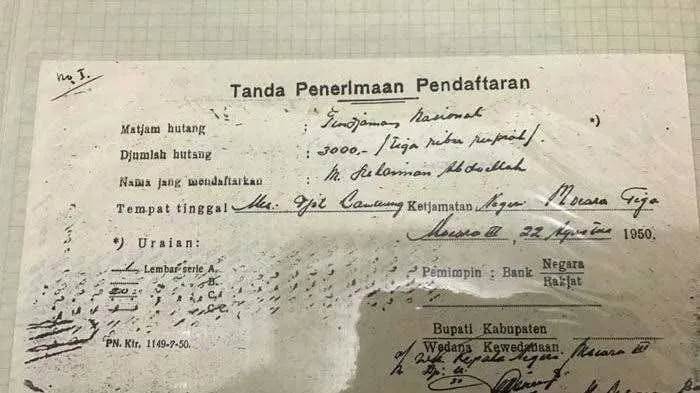 No. I.
Tanda Penerimaan Pendaftaran
Matjam hutang : Pindjaman Nasional *)
Djumlah hutang : 3000,- /tiga ribu rupiah/.
Nama jang mendaftarkan : M. Suleiman Abdullah
Tempat tinggal Ketjamatan Negeri Moeara Tiga
Moeara III, 22 Agustus 1950.
*) Uraian:
Lembar serie A.
B.
C.
Pemimpin : Bank Negara
Rakjat
Bupati Kabupaten
Wedana Kewedanaan.
Kepala Negeri Moeara III
PN. Klr. 1149-7-50.